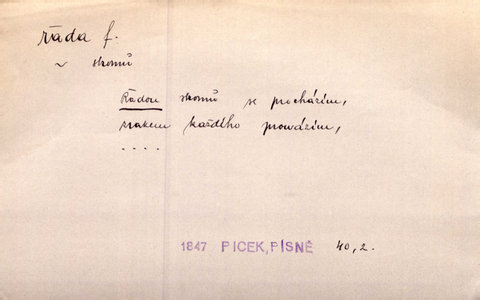 řada f.
~ stromů
Řadou stromů se procházím,
zrakem každého prowázím,
....
1847 PICEK, PÍSNĚ 40,2.